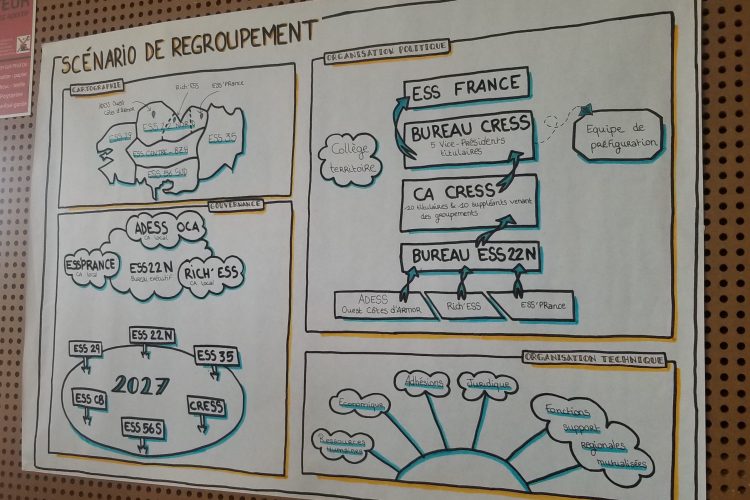 SCÉNARIO DE REGROUPEMENT
CARTOGRAPHIE
ADESS Ouest
Côtes d'Armor
Rich'ESS
ESS'PRance
ESS 29
ESS 22 NORD
ESS 35
ESS CENTRE-BZH
ESS 56 SUD
GOUVERNANCE
ADESS OCA
CA local
ESS'PRANCE
CA local
ESS22N
BUREAU EXÉCUTIF
RICH'ESS
CA local
ESS 22N
ESS 29
ESS 35
2027
ESS CB
CRESS
ESS 56S
ORGANISATION POLITIQUE
ESS FRANCE
BUREAU CRESS
5 Vice-Présidents
titulaires
Collège
territoire
Equipe de
préfiguration
CA CRESS
10 titulaires & 10 suppléants venant
des groupements
BUREAU ESS22N
ADESS
Ouest Côtes d'ARMOR
Rich'ESS
ESS'PRance
ORGANISATION TECHNIQUE
Ressources
Humaines
Economique
Adhésions
Juridique
Fonctions
support
Régionales
mutualisées